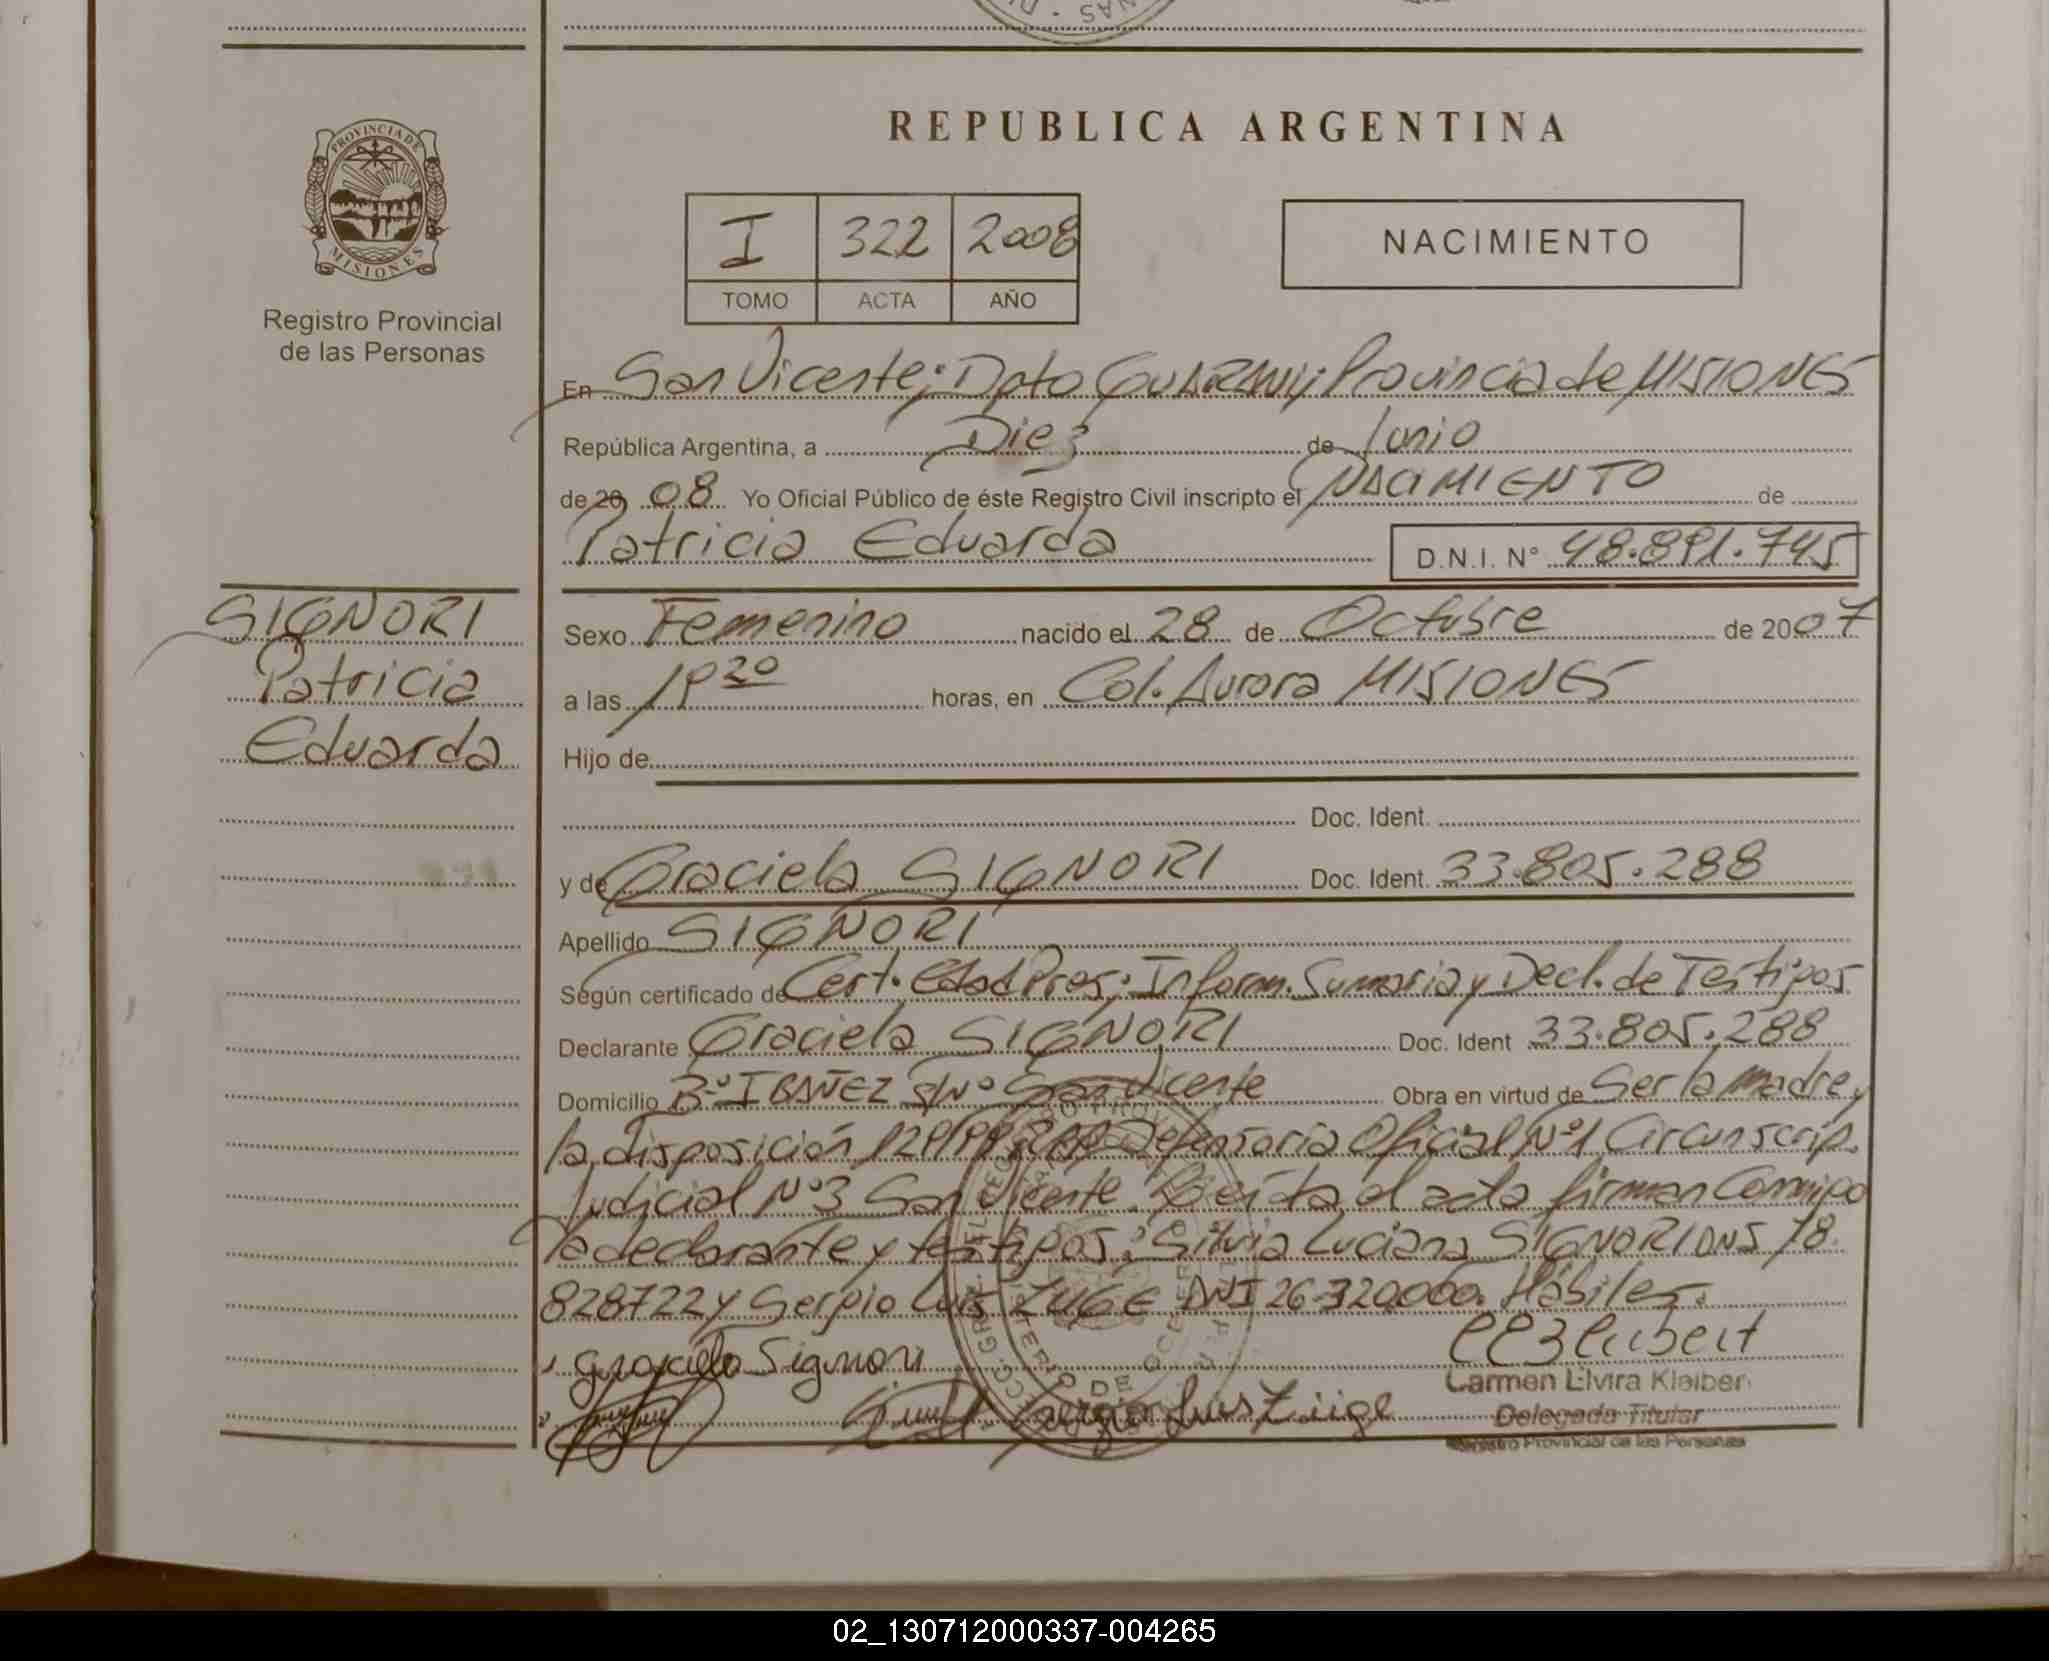 REPUBLICA ARGENTINA
PROVINCIA DE
MISIONES
Registro Provincial
de las Personas
I 322 2008
TOMO ACTA AÑO
NACIMIENTO
En San Vicente; Dpto GUARANI; Provincia de MISIONES
República Argentina, a Diez de Junio
de 20 08 Yo Oficial Público de éste Registro Civil inscripto el NACIMIENTO de
Patricia Eduarda D.N.I. Nº 48.891.745
SIGNORI
Patricia
Eduarda
Sexo Femenino nacido el 28 de Octubre de 2007
a las horas, en Col. Aurora MISIONES
Hijo de
Doc. Ident.
y de Graciela SIGNORI Doc. Ident. 33.805.288
Apellido SIGNORI
Según certificado de Cert. Edad Pres; Inform. Sumaria y Decl. de Testigos
Declarante Graciela SIGNORI Doc. Ident 33.805.288
Domicilio Bº IBAÑEZ S/Nº San Vicente Obra en virtud de Ser la madre y
la disposición Defensoria Oficial Nº1 Circunscrip.
Judicial Nº3 San Vicente. Leída el acta firman Conmigo
la declarante y testigos: Silvia Luciana SIGNORI DNI 18.
828722 y Sergio Luis ZUGE DNI 26.320000. Hábiles.
Graciela Signori
Sergio Luis Züge
Carmen Elvira Kleiber
Delegada Titular
Registro Provincial de las Personas
02_130712000337-004265